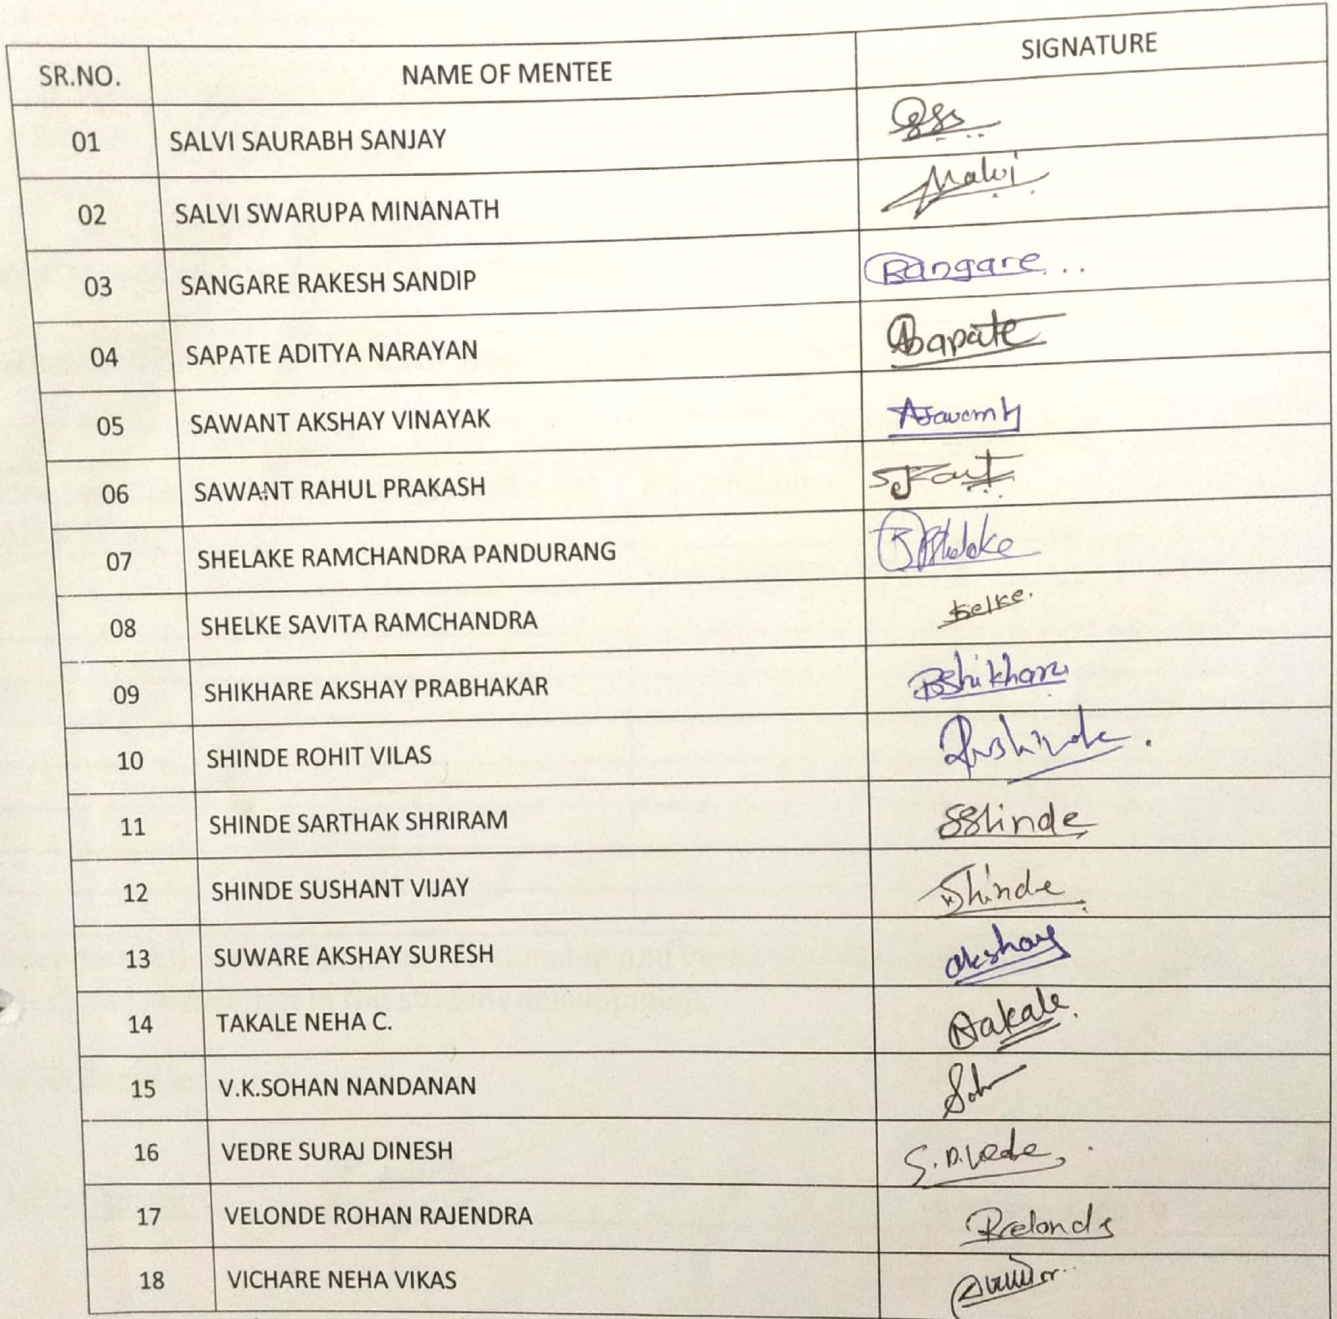 SR.NO. NAME OF MENTEE SIGNATURE
01 SALVI SAURABH SANJAY
02 SALVI SWARUPA MINANATH
03 SANGARE RAKESH SANDIP Rangare...
04 SAPATE ADITYA NARAYAN Asapate
05 SAWANT AKSHAY VINAYAK
06 SAWANT RAHUL PRAKASH
07 SHELAKE RAMCHANDRA PANDURANG
08 SHELKE SAVITA RAMCHANDRA
09 SHIKHARE AKSHAY PRABHAKAR
10 SHINDE ROHIT VILAS
11 SHINDE SARTHAK SHRIRAM SShinde
12 SHINDE SUSHANT VIJAY Shinde
13 SUWARE AKSHAY SURESH akshay
14 TAKALE NEHA C.
15 V.K.SOHAN NANDANAN
16 VEDRE SURAJ DINESH
17 VELONDE ROHAN RAJENDRA
18 VICHARE NEHA VIKAS